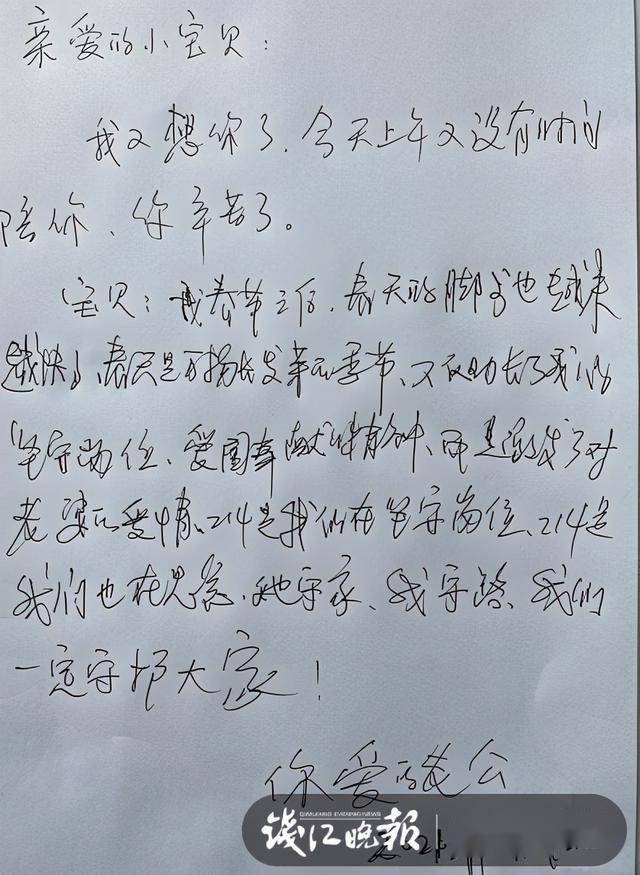 亲爱的小宝贝：
我又想你了，今天上午又没有时间
陪你、你辛苦了。
宝贝：春节之后，春天的脚步也越来
越快，春天是万物生发季节、不仅助长了我们
坚守岗位、爱国奉献精神、而且激发了对
老婆的爱情、214是我们在坚守岗位、214是
我们也在思念，她守家、我守路、我们
一定守护大家！
你爱的老公
钱江晚报
QIANJIANG EVENING NEWS